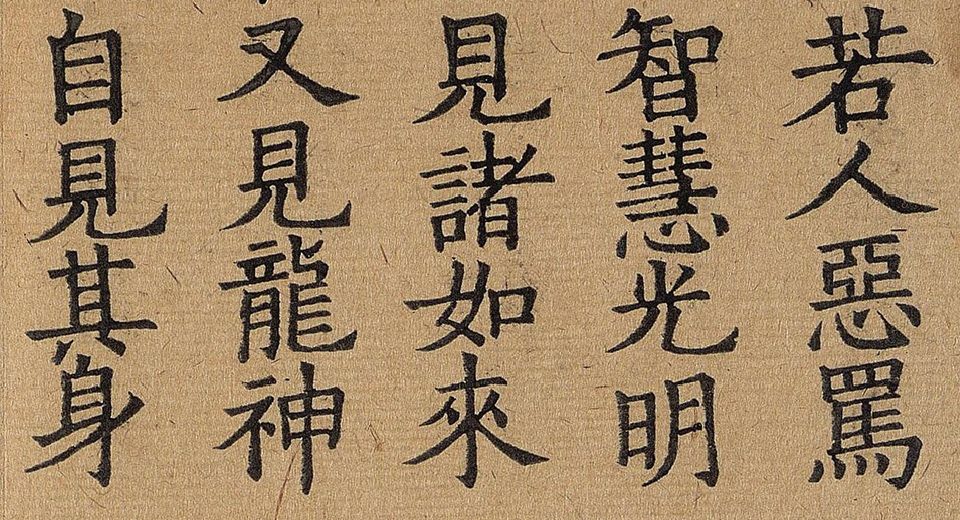 若人惡罵
智慧光明
見諸如來
又見龍神
自見其身